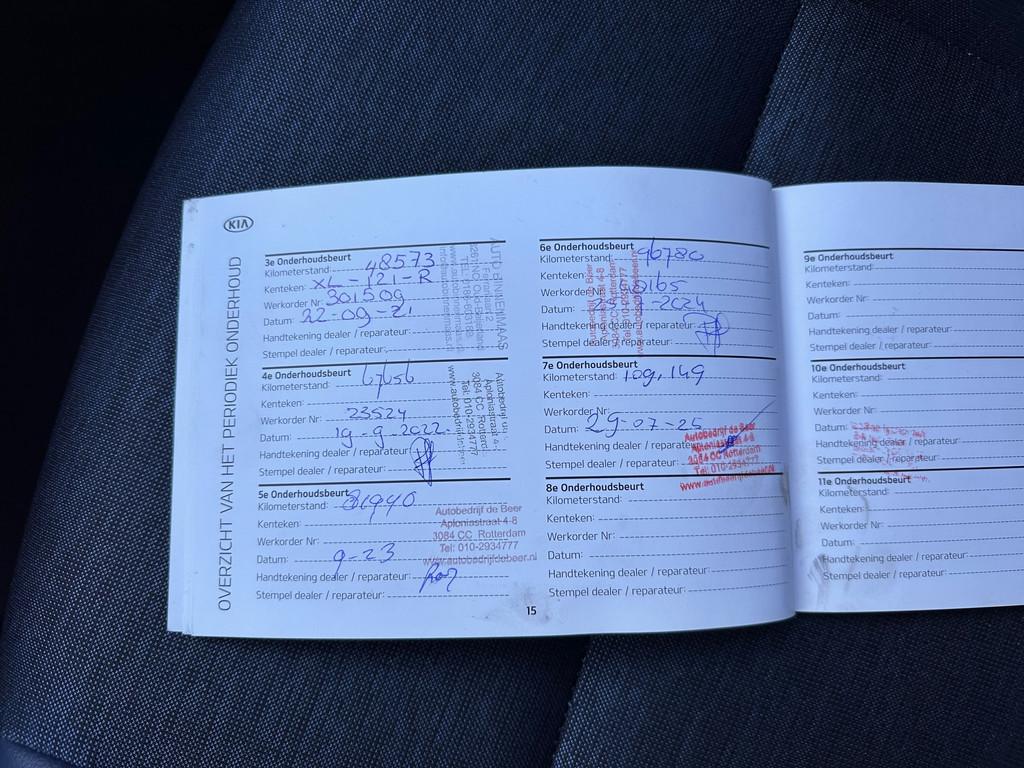 KIA
OVERZICHT VAN HET PERIODIEK ONDERHOUD
3e Onderhoudsbeurt
Kilometerstand: 48573
Kenteken: XL-121-R
Werkorder Nr: 301509
Datum: 22-09-21
Handtekening dealer / reparateur:
Stempel dealer / reparateur:
4e Onderhoudsbeurt
Kilometerstand: 67656
Kenteken:
Werkorder Nr: 23524
Datum: 19-9-2022
Handtekening dealer / reparateur:
Stempel dealer / reparateur:
Aploniastraat 4-
3084 CC Rotterd
Tel: 010-2934777
5e Onderhoudsbeurt
Kilometerstand: 81940
Kenteken:
Werkorder Nr:
Datum: 9-23
Handtekening dealer / reparateur:
Stempel dealer / reparateur:
Autobedrijf de Beer
Aploniastraat 4-8
3084 CC Rotterdam
Tel: 010-2934777
www.autobedrijfdebeer.nl
15
6e Onderhoudsbeurt
Kilometerstand: 96780
Kenteken:
Werkorder Nr:
Datum: -2024
Handtekening dealer / reparateur:
Stempel dealer / reparateur:
Aploniastraat 4-8
3084 CC Rotterdam
Tel: 010-2934777
7e Onderhoudsbeurt
Kilometerstand: 109,149
Kenteken:
Werkorder Nr:
Datum: 29-07-25
Handtekening dealer / reparateur:
Stempel dealer / reparateur:
Autobedrijf de Beer
Aploniastraat 4-8
3084 CC Rotterdam
Tel: 010-2934777
www.autobedrijfdebeer.nl
8e Onderhoudsbeurt
Kilometerstand:
Kenteken:
Werkorder Nr:
Datum:
Handtekening dealer / reparateur:
Stempel dealer / reparateur:
9e Onderhoudsbeurt
Kilometerstand:
Kenteken:
Werkorder Nr:
Datum:
Handtekening dealer / reparateur:
Stempel dealer / reparateur:
10e Onderhoudsbeurt
Kilometerstand:
Kenteken:
Werkorder Nr:
Datum:
Handtekening dealer / reparateur:
Stempel dealer / reparateur:
11e Onderhoudsbeurt
Kilometerstand:
Kenteken:
Werkorder Nr:
Datum:
Handtekening dealer / reparateur:
Stempel dealer / reparateur: